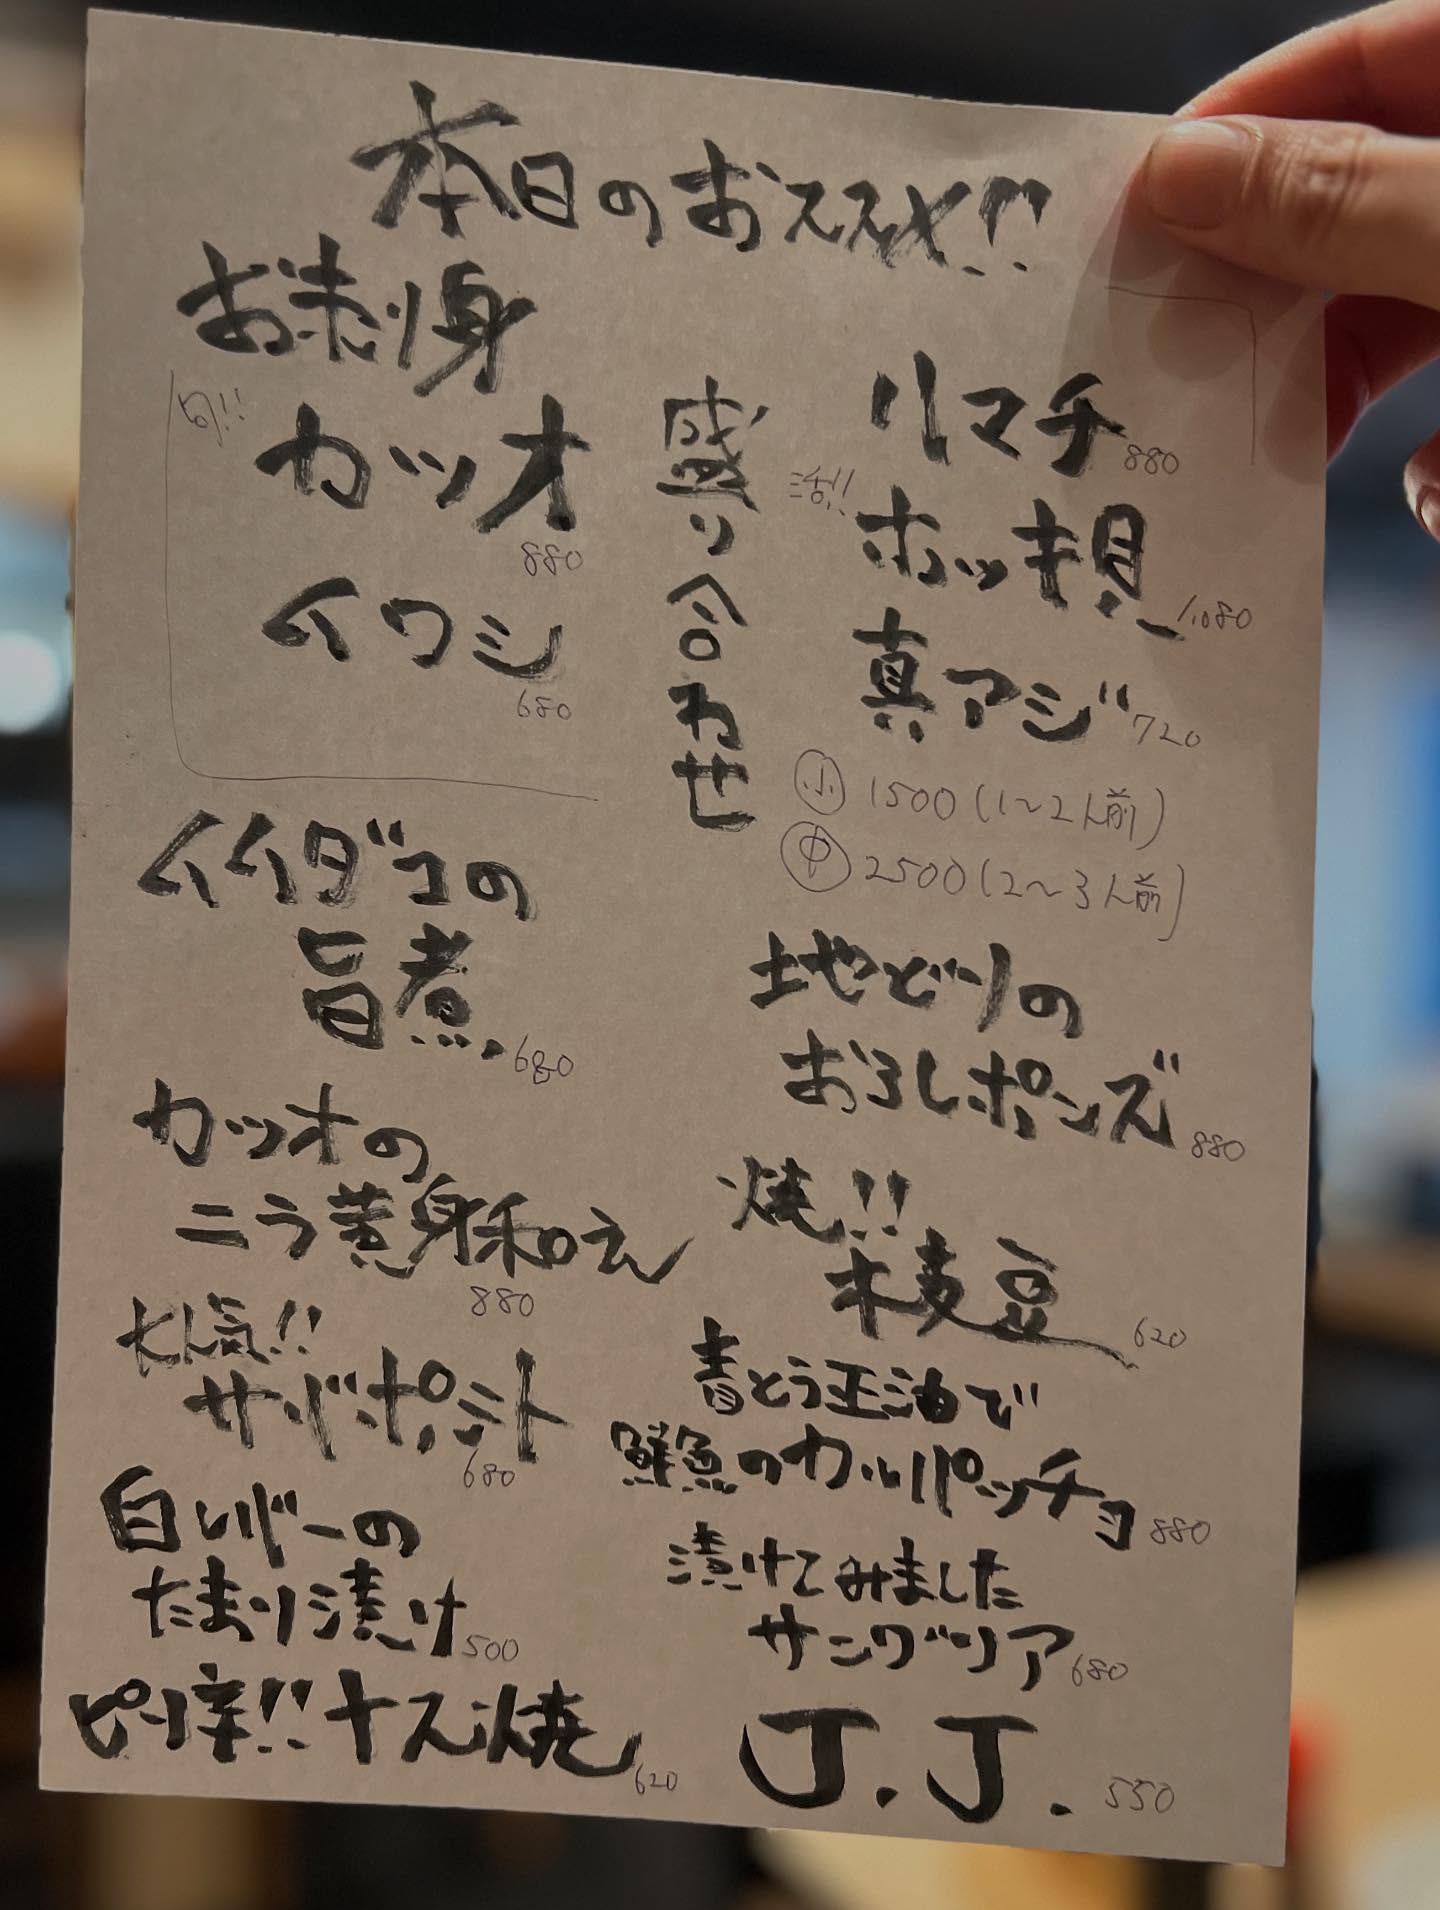 本日のおススメ!!
お刺身
旬!!
カツオ
880
イワシ
680
盛り合わせ
ハマチ 880
活!!
ホッキ貝 1,080
真アジ 720
小 1500(1〜2人前)
中 2500(2〜3人前)
イイダコの
旨煮 680
カツオの
ニラ黄身和え
880
大人気!!
サバポテト
680
白レバーの
たまり漬け 500
ピリ辛!!ナス焼 620
地どりの
おろしポンズ 880
焼!!
枝豆 620
青とう玉油で
鮮魚のカルパッチョ 880
漬けてみました
サングリア 680
J.J. 550